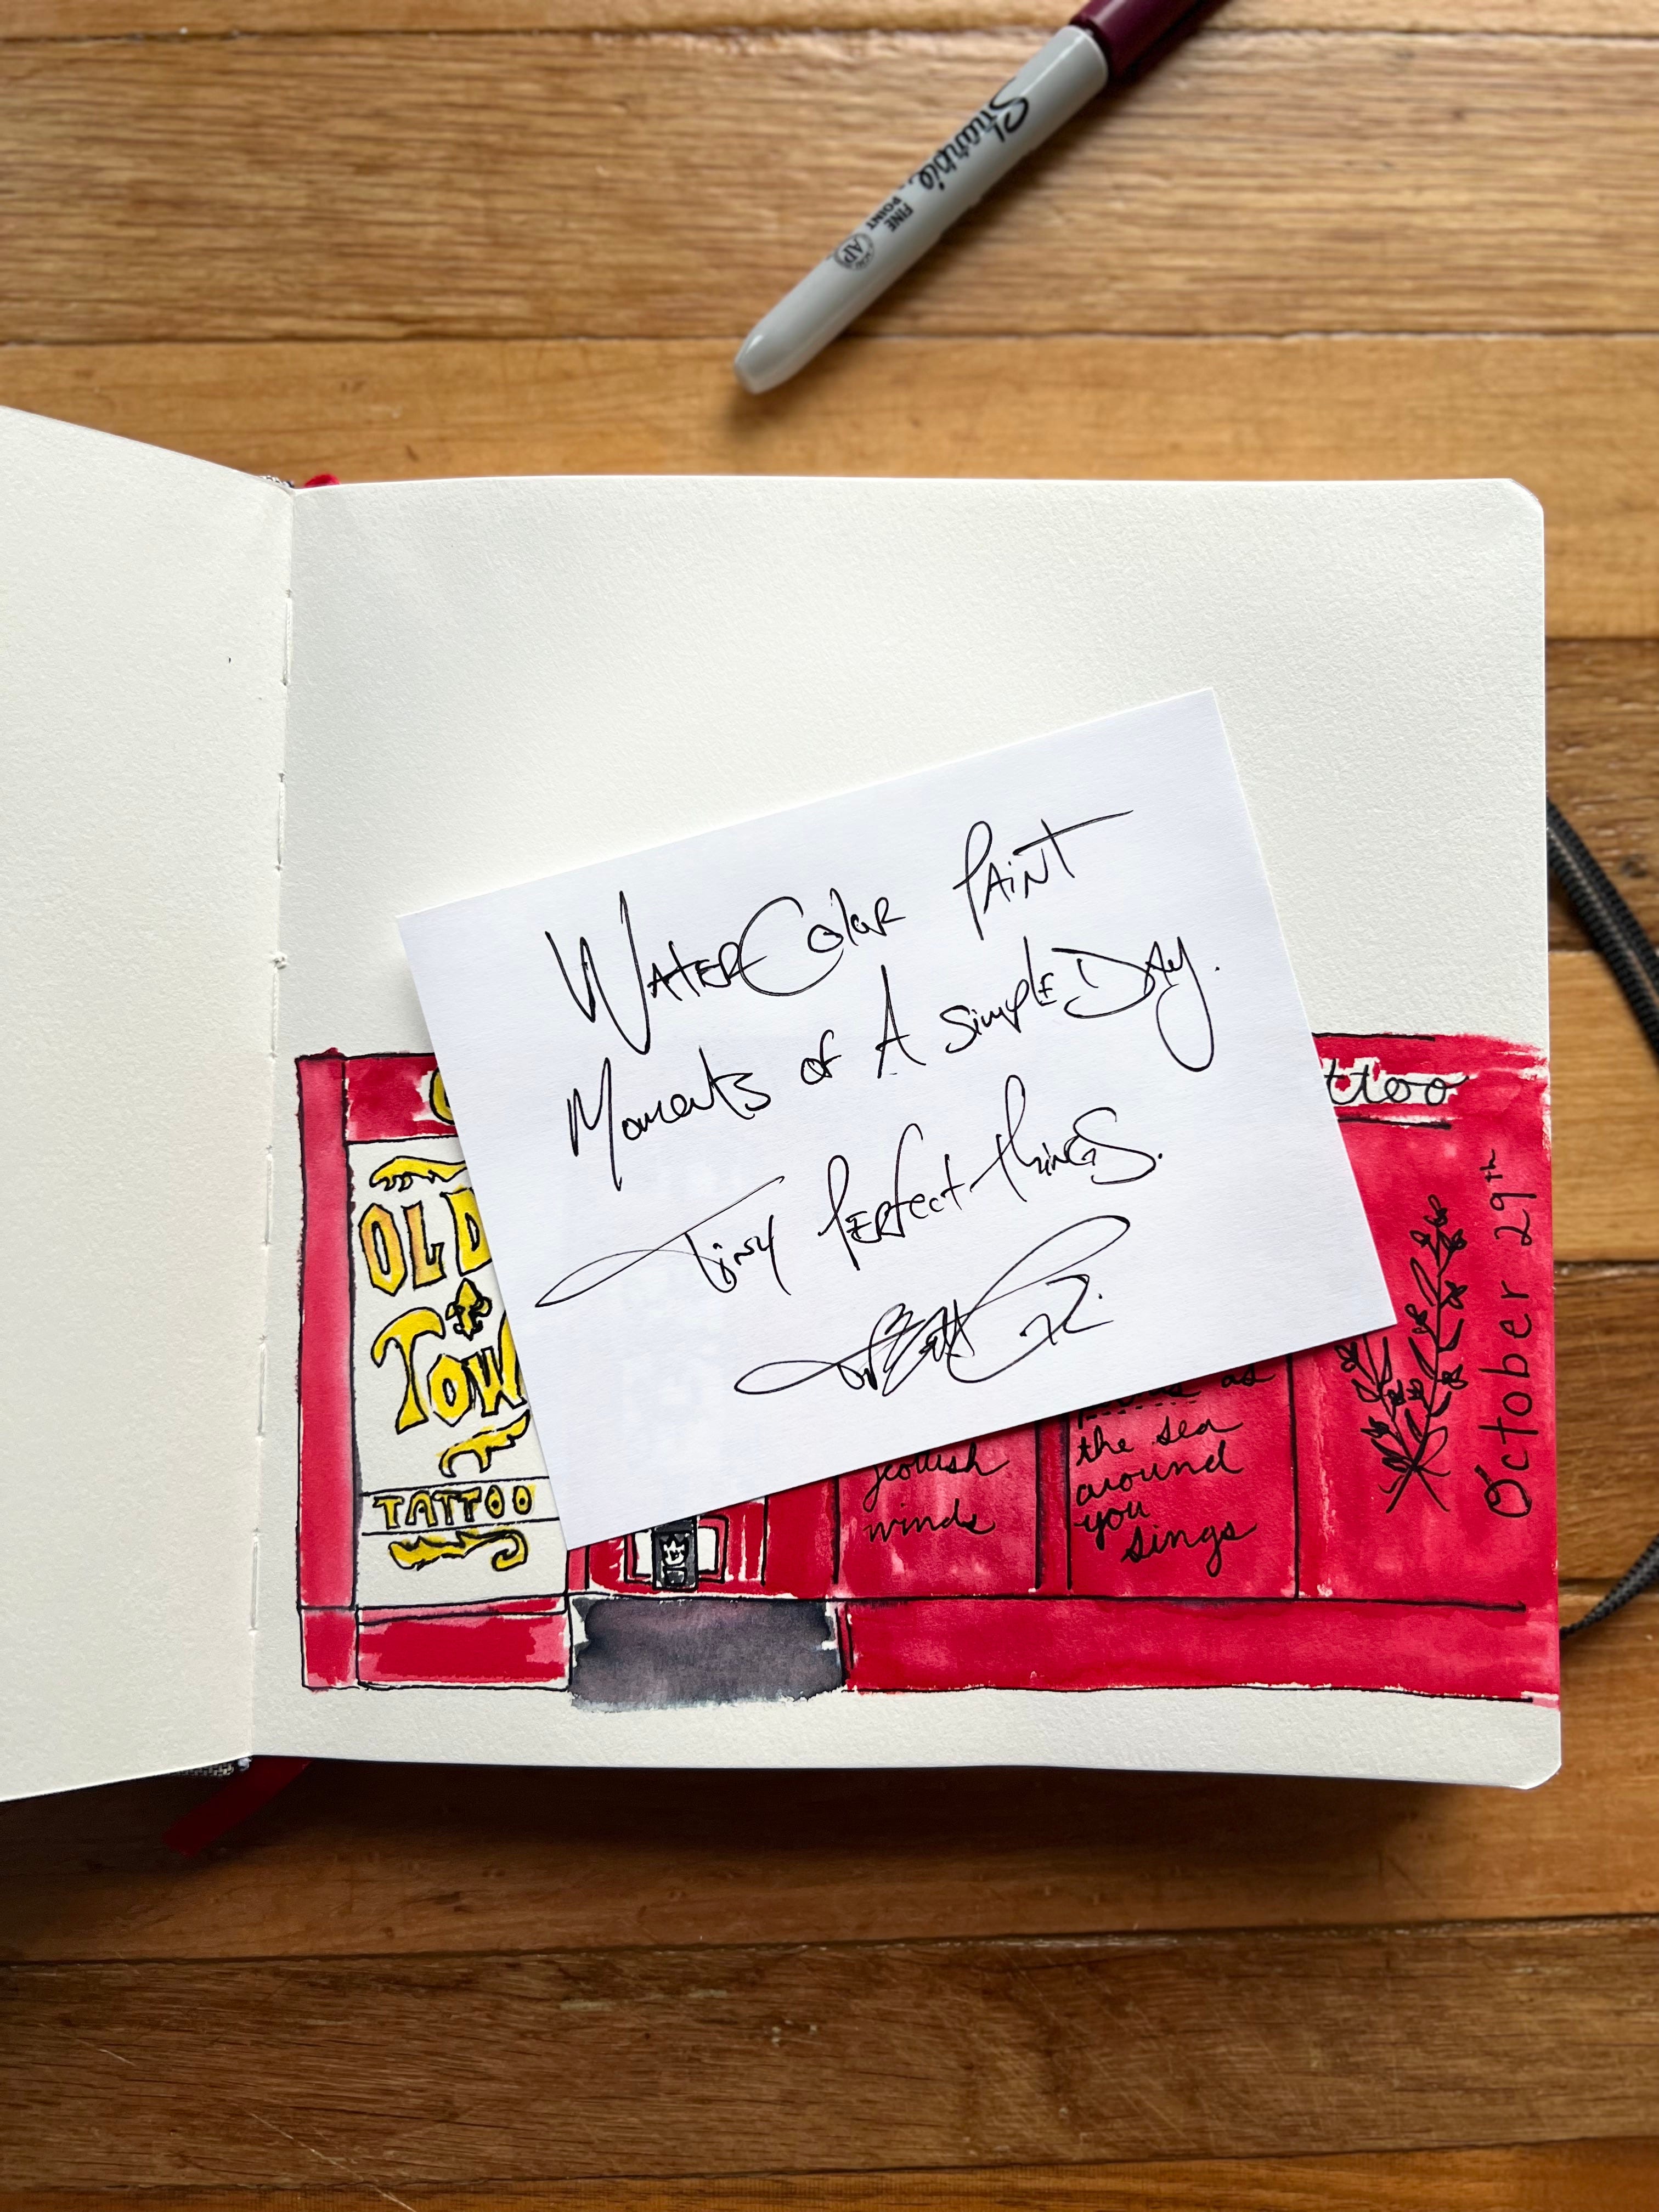 Sharpie
FINE
POINT
AP
WaterColor Paint
Moments of A Simple Day.
Tiny Perfect things.
ttoo
October 29th
OLD
TOW
TATTOO
as
the sea
around
you
sings
scottish
winds